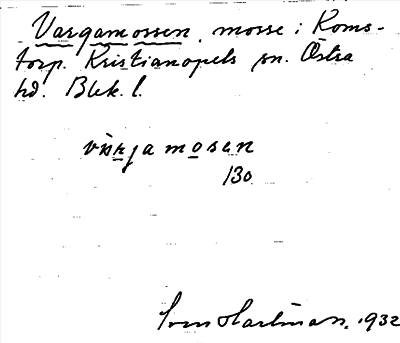 Vargamossen, mosse i Koms-
torp. Kristianopels sn. Östra
hd. Blek. l.
värjamosen
130
Sven Hartman. 1932